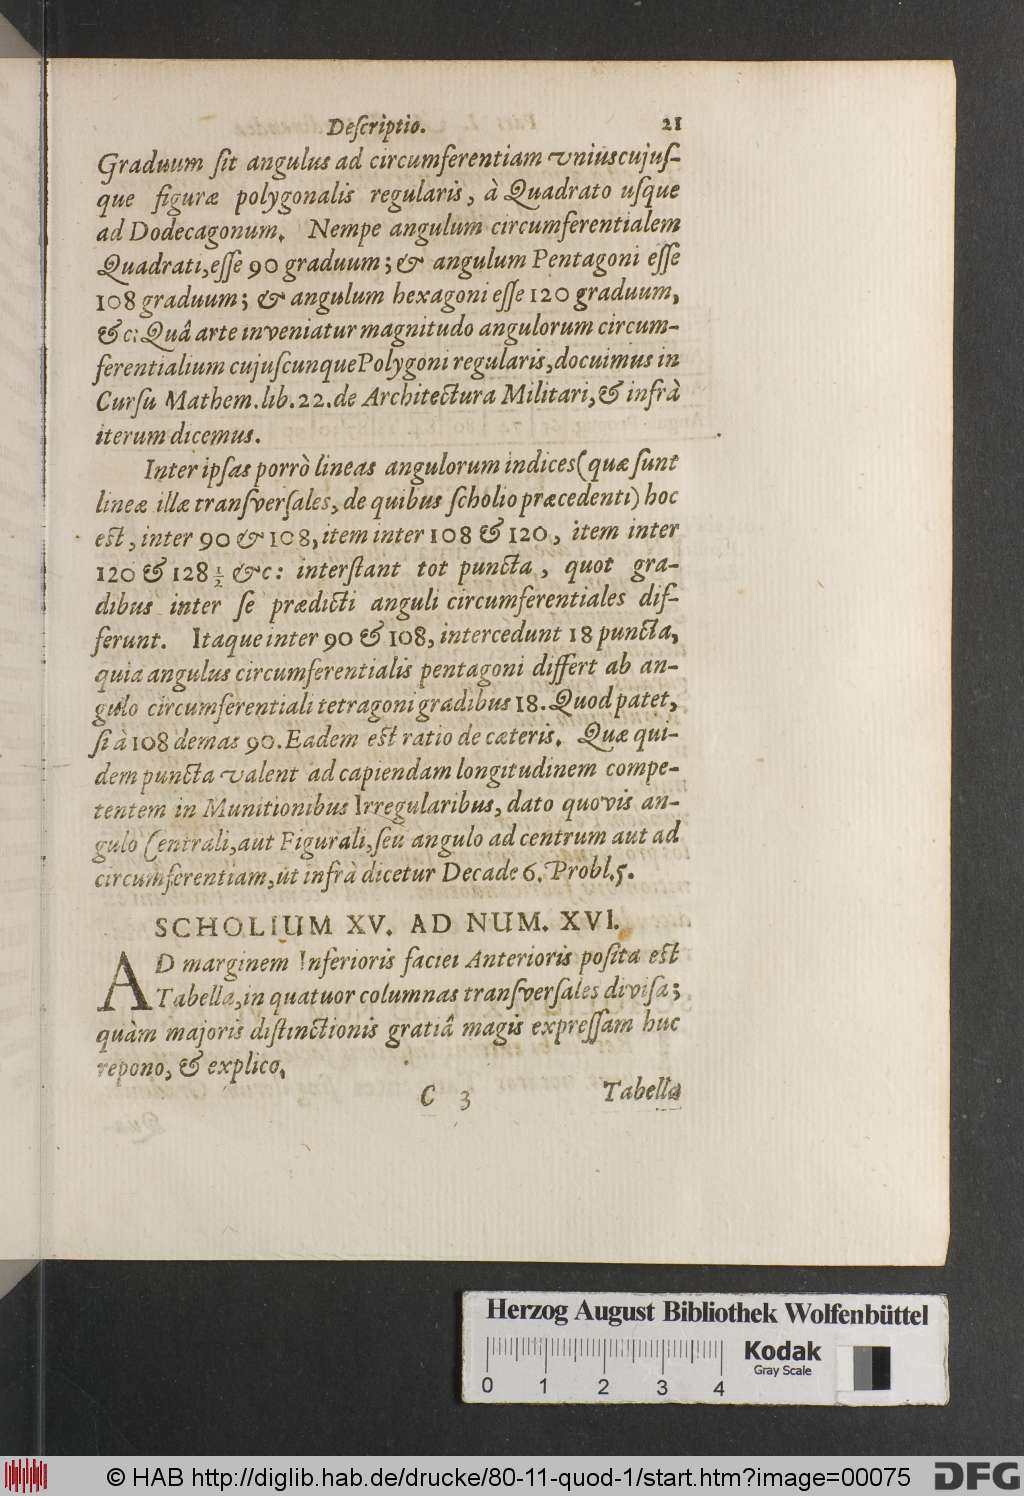 Deſcriptio. 21
Graduum ſit angulus ad circumferentiam vniuscujuſ-
que figuræ polygonalis regularis, à Quadrato uſque
ad Dodecagonum. Nempe angulum circumferentialem
Quadrati, eſſe 90 graduum; & angulum Pentagoni eſſe
108 graduum; & angulum hexagoni eſſe 120 graduum,
&c: Quâ arte inveniatur magnitudo angulorum circum-
ferentialium cujuſcunque Polygoni regularis, docuimus in
Curſu Mathem. lib. 22. de Architectura Militari, & infrà
iterum dicemus.
Inter ipſas porrò lineas angulorum indices (quæ ſunt
lineæ illæ tranſverſales, de quibus ſcholio præcedenti) hoc
eſt, inter 90 & 108, item inter 108 & 120, item inter
120 & 128 1/2 &c: interſtant tot puncta, quot gra-
dibus inter ſe prædicti anguli circumferentiales dif-
ferunt. Itaque inter 90 & 108, intercedunt 18 puncta,
quia angulus circumferentialis pentagoni differt ab an-
gulo circumferentiali tetragoni gradibus 18. Quod patet,
ſi à 108 demas 90. Eadem eſt ratio de cæteris. Quæ qui-
dem puncta valent ad capiendam longitudinem compe-
tentem in Munitionibus Irregularibus, dato quovis an-
gulo Centrali, aut Figurali, ſeu angulo ad centrum aut ad
circumferentiam, ut infrà dicetur Decade 6. Probl. 5.
SCHOLIUM XV. AD NUM. XVI.
AD marginem Inferioris faciei Anterioris poſita eſt
Tabella, in quatuor columnas tranſverſales diviſa;
quàm majoris diſtinctionis gratiâ magis expreſſam huc
repono, & explico.
C 3 Tabella
Herzog August Bibliothek Wolfenbüttel
Kodak
Gray Scale
0 1 2 3 4
© HAB http://diglib.hab.de/drucke/80-11-quod-1/start.htm?image=00075
DFG